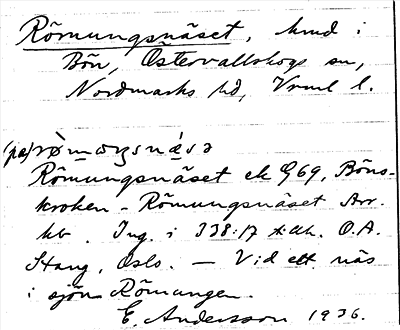 Römungsnäset, hmd i
Bön, Östervallskogs sn,
Nordmarks hd, Vrml l.
(på) rò̀moŋsnä́sə
Römungsnäset ek Q69, Böns-
kroken - Römungsnäset Arr.
kb. Ing. i 338:17 tillh. O.A.
Stang, Oslo. — Vid ett näs
i sjön Römungen.
E. Andersson 1936.